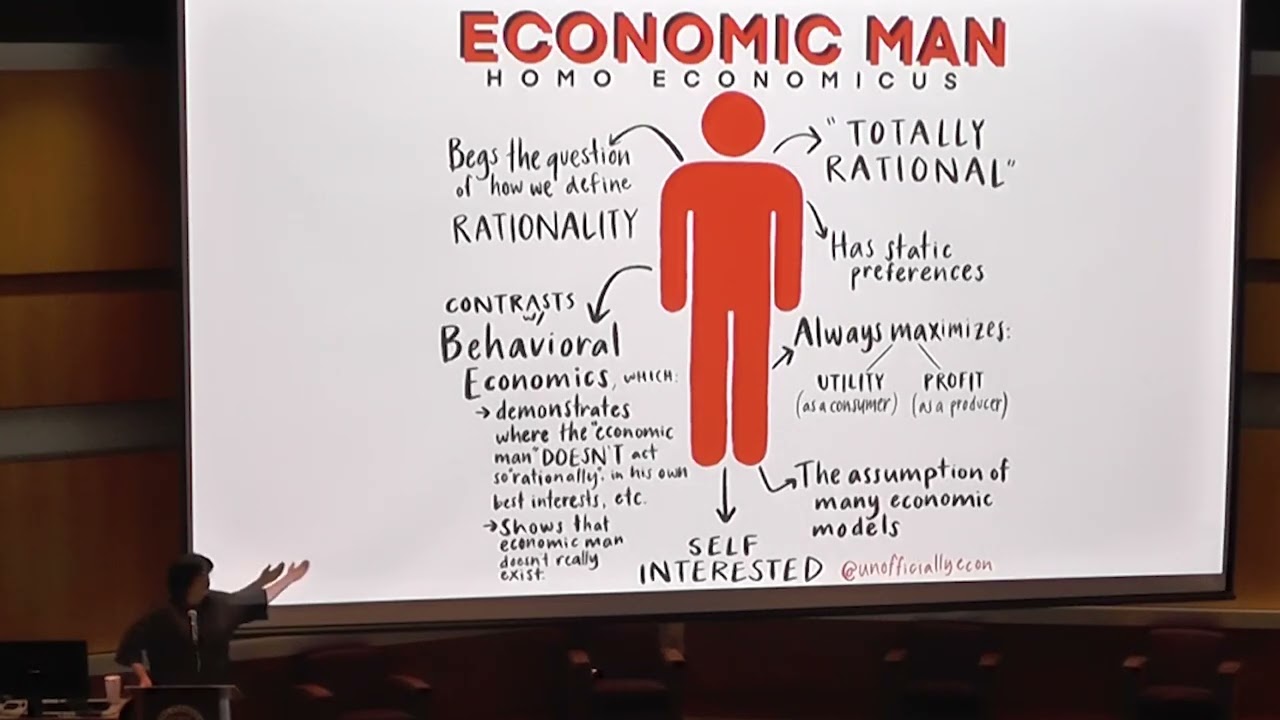 ECONOMIC MAN
HOMO ECONOMICUS
Begs the question
of how we define
RATIONALITY
CONTRASTS
W/
Behavioral
Economics, WHICH:
→ demonstrates
where the "economic
man" DOESN'T act
so "rationally", in his own
best interests, etc.
→ Shows that
economic man
doesn't really
exist.
"TOTALLY
RATIONAL"
Has static
preferences
Always maximizes:
UTILITY PROFIT
(as a consumer) (as a producer)
The assumption of
many economic
models
SELF
INTERESTED
@unofficiallyecon